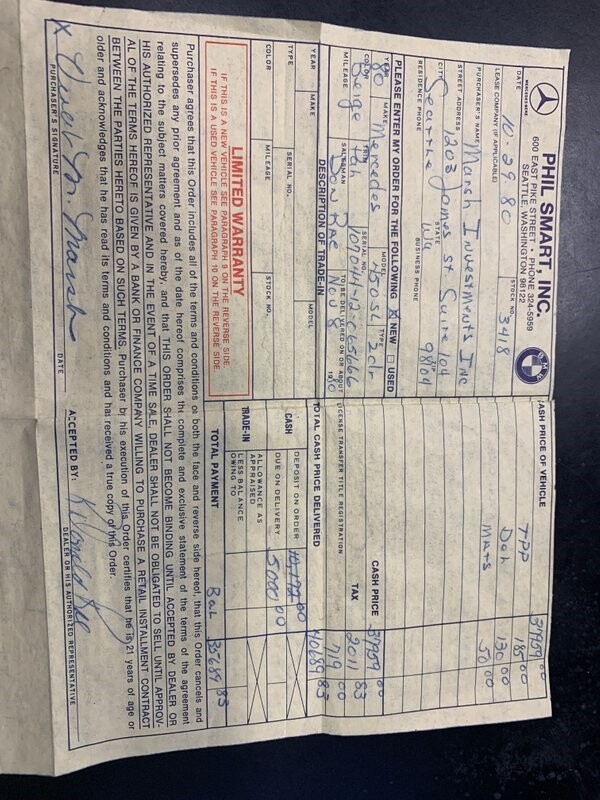 PHIL SMART, INC.
600 EAST PIKE STREET • PHONE 324-5959
SEATTLE, WASHINGTON 98122
MERCEDES-BENZ
BMW
10-29-80
DATE
STOCK NO. 3418
LEASE COMPANY (IF APPLICABLE)
March Investments Inc
PURCHASER'S NAME
1203 James St Suite 104
STREET ADDRESS
Seattle Wa 98104
CITY STATE ZIP
RESIDENCE PHONE BUSINESS PHONE
PLEASE ENTER MY ORDER FOR THE FOLLOWING ☒ NEW ☐ USED
80 Mercedes 450SL 2dr
YEAR MAKE MODEL TYPE
Beige
COLOR TRIM SERIAL NO.
MILEAGE SALESMAN TO BE DELIVERED ON OR ABOUT
Don Rae Nov 8 1980
DESCRIPTION OF TRADE-IN
YEAR MAKE MODEL
TYPE SERIAL NO.
COLOR MILEAGE STOCK NO.
LIMITED WARRANTY
IF THIS IS A NEW VEHICLE SEE PARAGRAPH 9 ON THE REVERSE SIDE
IF THIS IS A USED VEHICLE SEE PARAGRAPH 10 ON THE REVERSE SIDE
CASH PRICE OF VEHICLE
TPP 185 00
130 00
Mats 50 00
CASH PRICE
TAX 2011 83
LICENSE TRANSFER TITLE REGISTRATION 719 00
TOTAL CASH PRICE DELIVERED 40689 83
CASH
DEPOSIT ON ORDER
DUE ON DELIVERY 5000 00
TRADE-IN
ALLOWANCE AS APPRAISED
LESS BALANCE OWING TO
TOTAL PAYMENT Bal 35689 83
Purchaser agrees that this Order includes all of the terms and conditions on both the face and reverse side hereof, that this Order cancels and
supersedes any prior agreement and as of the date hereof comprises the complete and exclusive statement of the terms of the agreement
relating to the subject matters covered hereby, and that THIS ORDER SHALL NOT BECOME BINDING UNTIL ACCEPTED BY DEALER OR
HIS AUTHORIZED REPRESENTATIVE AND IN THE EVENT OF A TIME SALE, DEALER SHALL NOT BE OBLIGATED TO SELL UNTIL APPROV-
AL OF THE TERMS HEREOF IS GIVEN BY A BANK OR FINANCE COMPANY WILLING TO PURCHASE A RETAIL INSTALLMENT CONTRACT
BETWEEN THE PARTIES HERETO BASED ON SUCH TERMS. Purchaser by his execution of this Order certifies that he is 21 years of age or
older and acknowledges that he has read its terms and conditions and has received a true copy of this Order.
X
PURCHASER'S SIGNATURE DATE
ACCEPTED BY:
DEALER OR HIS AUTHORIZED REPRESENTATIVE